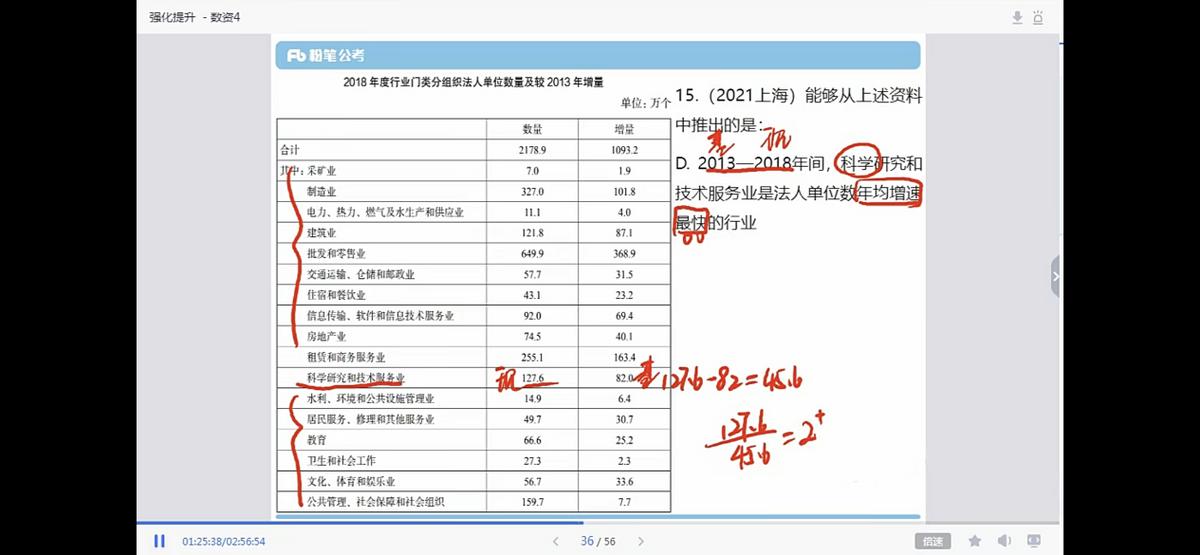 强化提升 - 数资4
粉笔公考
2018 年度行业门类分组织法人单位数量及较 2013 年增量
单位：万个
数量 增量
合计 2178.9 1093.2
其中：采矿业 7.0 1.9
制造业 327.0 101.8
电力、热力、燃气及水生产和供应业 11.1 4.0
建筑业 121.8 87.1
批发和零售业 649.9 368.9
交通运输、仓储和邮政业 57.7 31.5
住宿和餐饮业 43.1 23.2
信息传输、软件和信息技术服务业 92.0 69.4
房地产业 74.5 40.1
租赁和商务服务业 255.1 163.4
科学研究和技术服务业 127.6 82.0
水利、环境和公共设施管理业 14.9 6.4
居民服务、修理和其他服务业 49.7 30.7
教育 66.6 25.2
卫生和社会工作 27.3 2.3
文化、体育和娱乐业 56.7 33.6
公共管理、社会保障和社会组织 159.7 7.7
15.（2021上海）能够从上述资料
中推出的是：
基 现
D. 2013—2018年间，科学研究和
技术服务业是法人单位数年均增速
最快的行业
现
基 127.6-82=45.6
127.6
45.6
=2+
01:25:38/02:56:54
36 / 56
倍速